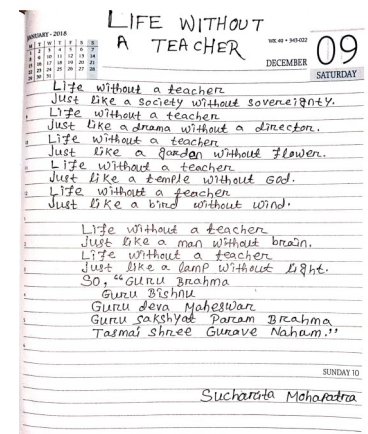 LIFE WITHOUT
A TEACHER
JANUARY - 2018
M T W T F S S
1 2 3 4 5 6 7
8 9 10 11 12 13 14
15 16 17 18 19 20 21
22 23 24 25 26 27 28
29 30 31
WK 49 • 343-022
DECEMBER
09
SATURDAY
Life without a teacher
Just like a society without sovereignty.
Life without a teacher
Just like a drama without a director.
Life without a teacher
Just like a garden without flower.
Life without a teacher
Just like a temple without God.
Life without a teacher
Just like a bird without wind.
Life without a teacher
Just like a man without brain.
Life without a teacher
Just like a lamp without light.
So, "Guru Brahma
Guru Bishnu
Guru deva Maheswar
Guru sakshyat Param Brahma
Tasmai shree Gurave Naham."
SUNDAY 10
Sucharita Mohapatra